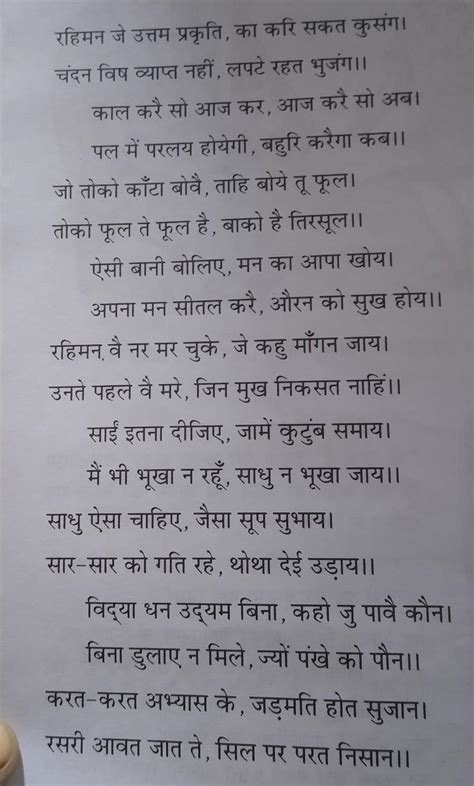 रहिमन जे उत्तम प्रकृति, का करि सकत कुसंग।
चंदन विष व्याप्त नहीं, लपटे रहत भुजंग।।
काल करै सो आज कर, आज करै सो अब।
पल में परलय होयेगी, बहुरि करैगा कब।।
जो तोको काँटा बोवै, ताहि बोये तू फूल।
तोको फूल ते फूल है, बाको है तिरसूल।।
ऐसी बानी बोलिए, मन का आपा खोय।
अपना मन सीतल करै, औरन को सुख होय।।
रहिमन वै नर मर चुके, जे कहु माँगन जाय।
उनते पहले वै मरे, जिन मुख निकसत नाहिं।।
साईं इतना दीजिए, जामें कुटुंब समाय।
मैं भी भूखा न रहूँ, साधु न भूखा जाय।।
साधु ऐसा चाहिए, जैसा सूप सुभाय।
सार-सार को गति रहे, थोथा देई उड़ाय।।
विद्‌या धन उद्‌यम बिना, कहो जु पावै कौन।
बिना डुलाए न मिले, ज्यों पंखे को पौन।।
करत-करत अभ्यास के, जड़मति होत सुजान।
रसरी आवत जात ते, सिल पर परत निसान।।